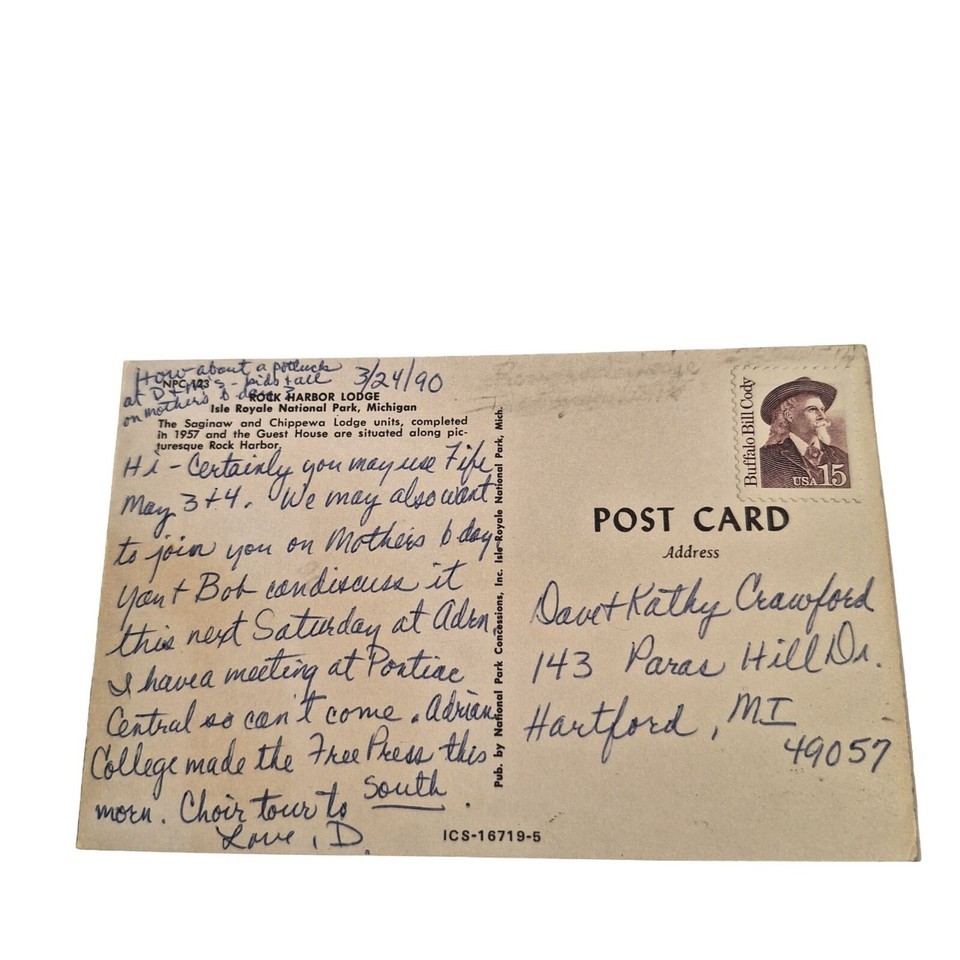 How about a potluck
at D + M's - kids + all
on mothers b day?
3/24/90
NPC-123
ROCK HARBOR LODGE
Isle Royale National Park, Michigan
The Saginaw and Chippewa Lodge units, completed
in 1957 and the Guest House are situated along pic-
turesque Rock Harbor.
Hi - Certainly you may use Fife
May 3 + 4. We may also want
to join you on Mothers b day
You + Bob can discuss it
this next Saturday at Adrn
I have a meeting at Pontiac
Central so can't come. Adrian
College made the Free Press this
morn. Choir tour to South.
Love, D.
Pub. by National Park Concessions, Inc. Isle Royale National Park, Mich.
ICS-16719-5
Buffalo Bill Cody
USA 15
POST CARD
Address
Dave + Kathy Crawford
143 Paras Hill Dr.
Hartford, MI
49057